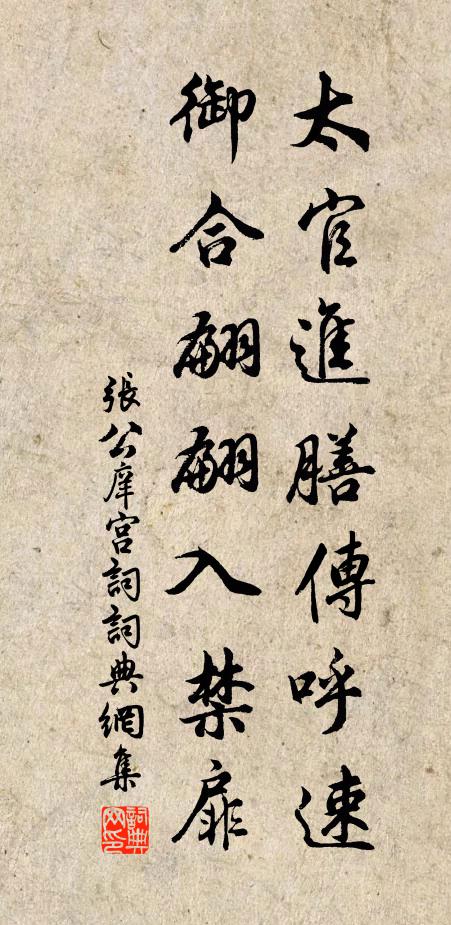 太官進膳傳呼速
御合翩翩入禁扉
張公庠宮詞詞典網集
詞典网印